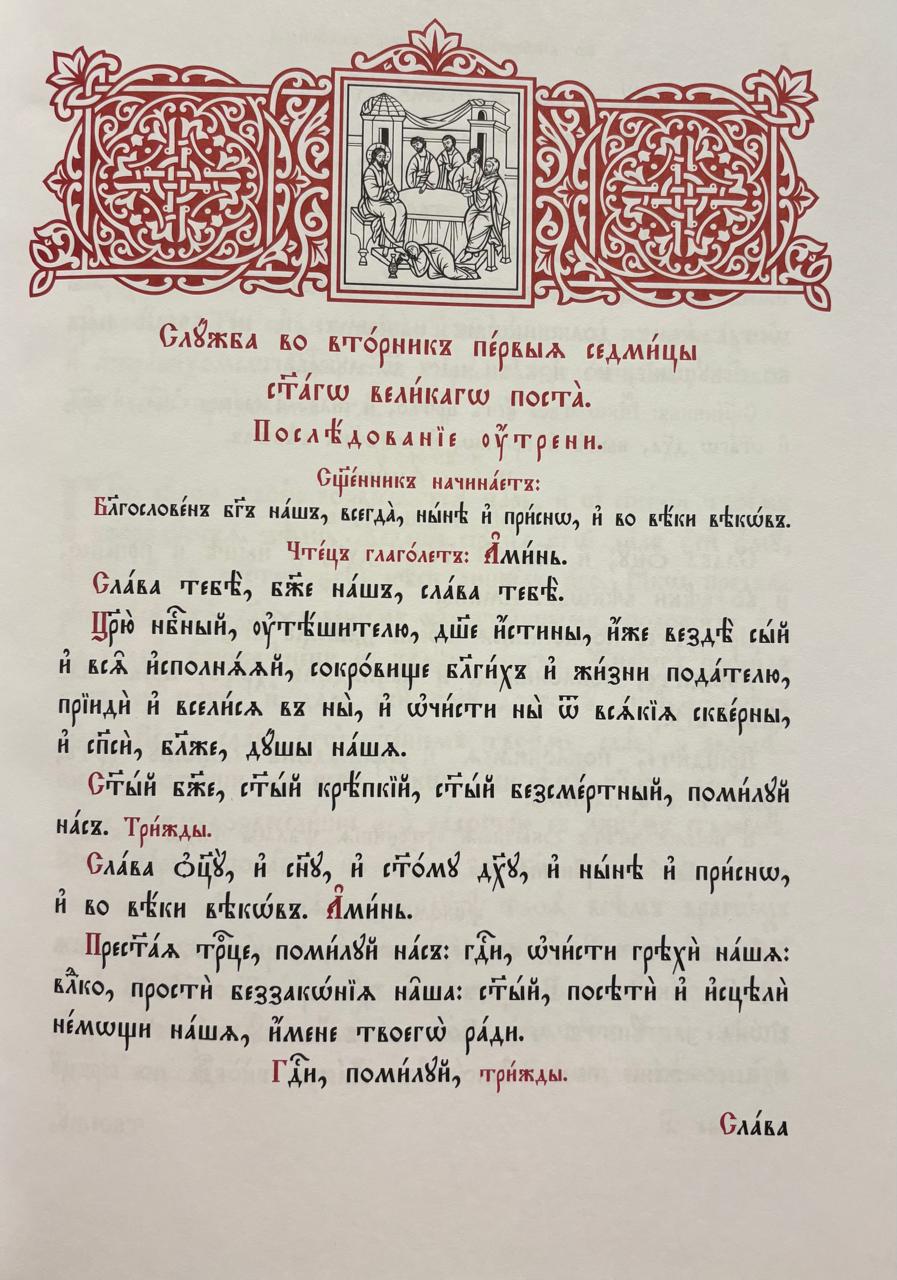 Слꙋ́жба во вто́рникъ пе́рвыѧ седми́цы
ст҃а́гѡ вели́кагѡ поста̀.
Послѣ́дованїе оу҆́трени.
Сщ҃е́нникъ начина́етъ:
Бл҃гослове́нъ бг҃ъ на́шъ, всегда̀, ны́нѣ и҆ при́снѡ, и҆ во вѣ́ки вѣкѡ́въ.
Чте́цъ глаго́летъ: А҆ми́нь.
Сла́ва тебѣ̀, бж҃е на́шъ, сла́ва тебѣ̀.
Цр҃ю̀ нбⷭ҇ный, оу҆тѣ́шителю, дш҃е и҆́стины, и҆́же вездѣ̀ сы́й
и҆ всѧ̑ и҆сполнѧ́ѧй, сокро́вище бл҃ги́хъ и҆ жи́зни пода́телю,
прїидѝ и҆ всели́сѧ въ ны̀, и҆ ѡ҆чи́сти ны̀ ѿ всѧ́кїѧ скве́рны,
и҆ сп҃сѝ, бл҃же, дꙋ́шы на́шѧ.
Ст҃ы́й бж҃е, ст҃ы́й крѣ́пкїй, ст҃ы́й безсме́ртный, поми́лꙋй
на́съ. Три́жды.
Сла́ва ѻ҆ц҃ꙋ̀, и҆ сн҃ꙋ, и҆ ст҃о́мꙋ дх҃ꙋ, и҆ ны́нѣ и҆ при́снѡ,
и҆ во вѣ́ки вѣкѡ́въ. А҆ми́нь.
Прест҃а́ѧ трⷪ҇це, поми́лꙋй на́съ: гдⷭ҇и, ѡ҆чи́сти грѣхѝ на́шѧ:
влⷣко, простѝ беззакѡ́нїѧ на̑ша: ст҃ы́й, посѣтѝ и҆ и҆сцѣлѝ
не́мѡщи на́шѧ, и҆́мене твоегѡ̀ ра́ди.
Гдⷭ҇и, поми́лꙋй, три́жды.
Сла́ва